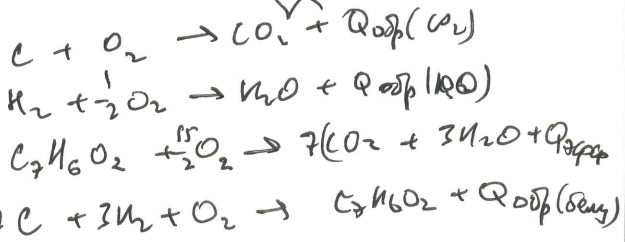 C + O₂ → CO₂ + Qобр(CO₂)
H₂ + 1/2 O₂ → H₂O + Qобр(H₂O)
C₇H₆O₂ + 15/2 O₂ → 7CO₂ + 3H₂O + Q
C + 3H₂ + O₂ → C₇H₆O₂ + Qобр(бенз)